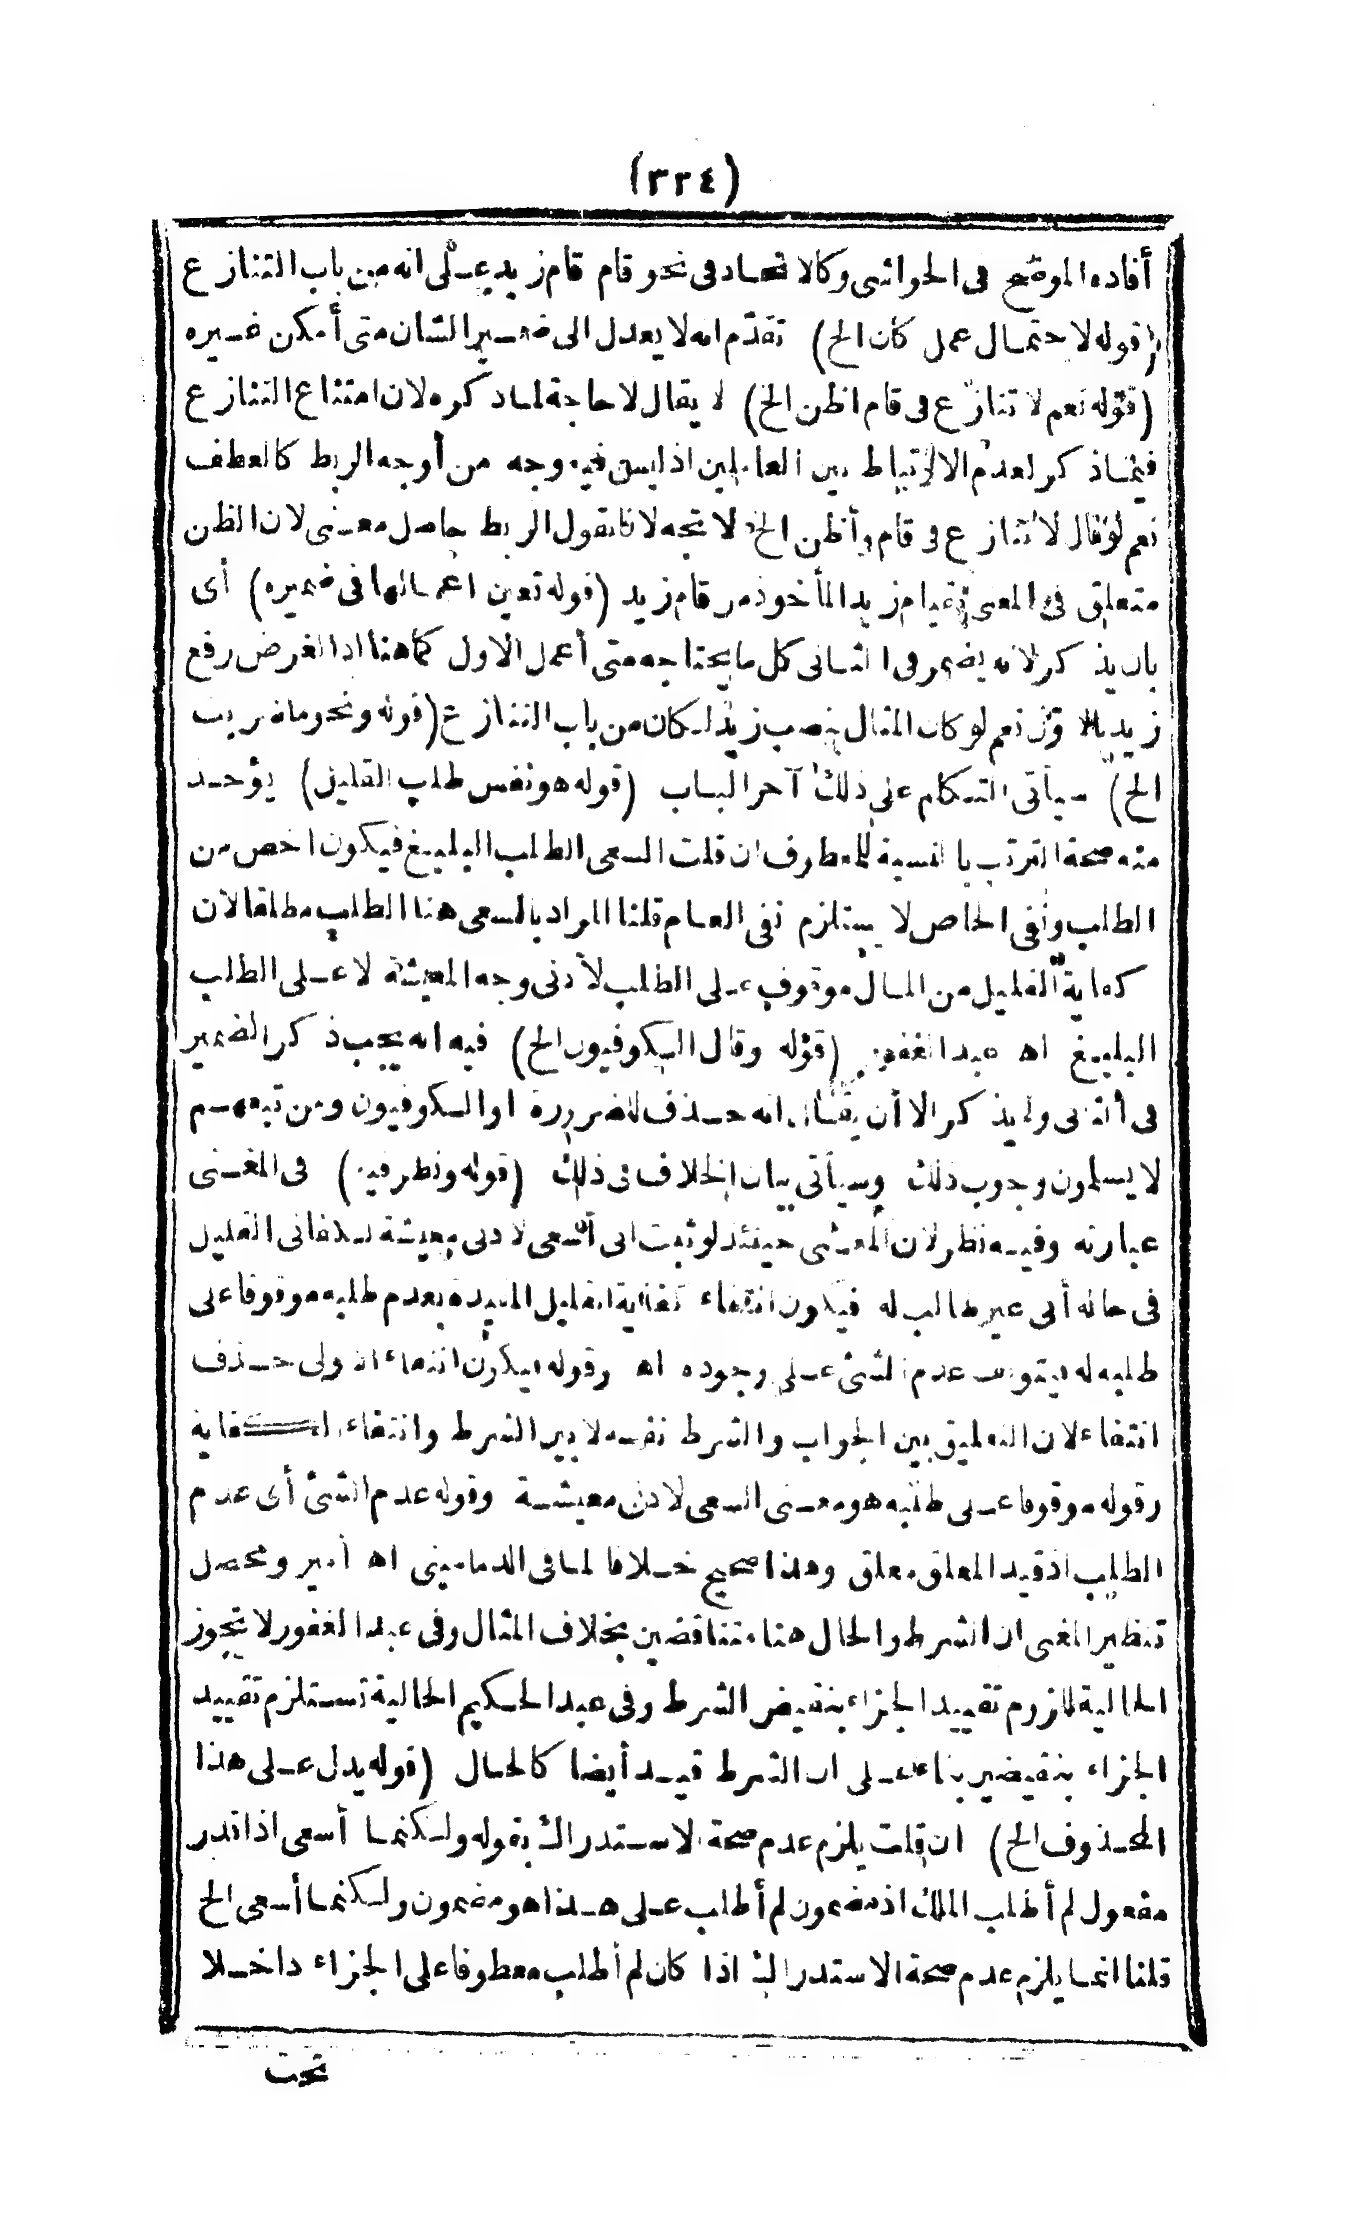 (٣٢٤)
أفاده الموضح فى الحواشى وكالاتحاد فى نحو قام قام زيد على انه من باب التنازع
(قوله لاحتمال عمل كان الخ) تقدّم انه لا يعدل الى ضمير الشان متى أمكن غيره
(قوله نعم لا تنازع فى قام اظن الخ) لا يقال لا حاجة لما ذكره لان امتناع التنازع
فيما ذكر لعدم الارتباط بين العاملين اذ ليس فيه وجه من أوجه الربط كالعطف
نعم لو قال لا تنازع فى قام وأظن الخ لا تجه لانا نقول الربط حاصل معنى لان الظن
متعلق فى المعنى بقيام زيد المأخوذ من قام زيد (قوله تعين اعمالها فى ضميره) أى
بان يذكر لانه يضمر فى الثانى كل ما يحتاجه متى أعمل الاول كما هنا اذ الغرض رفع
زيد بالاول نعم لو كان المثال بنصب زيد لكان من باب التنازع (قوله ونحو ما ضربت
الخ) سيأتى التكلم على ذلك آخر الباب (قوله هو نفس طلب القليل) يؤخذ
منه صحة الترتب بالنسبة للمعطوف ان قلت السعى الطلب البليغ فيكون اخص من
الطلب ونفى الخاص لا يستلزم نفى العام قلنا المراد بالسعى هنا الطلب مطلقا لان
كفاية القليل من المال موقوف على الطلب لأدنى وجه المعيشة لا على الطلب
البليغ اه عبد الغفور (قوله وقال الكوفيون الخ) فيه انه يجب ذكر الضمير
فى أتانى ولم يذكر الا أن يقال انه حذف للضرورة او الكوفيون ومن تبعهم
لا يسلمون وجوب ذلك وسيأتى بيان الخلاف فى ذلك (قوله ونظر فيه) فى المغنى
عبارته وفيه نظر لان المعنى حينئذ لو ثبت انى أسعى لادنى معيشة لكفانى القليل
فى حالة أنى غير طالب له فيكون انتفاء كفاية القليل المقيدة بعدم طلبه موقوفا على
طلبه له فيتوقف عدم الشئ على وجوده اه وقوله فيكون انتفاء الاولى حذف
انتفاء لان التعليق بين الجواب والشرط نفسه لا بين الشرط وانتفاء الكفاية
وقوله موقوفا على طلبه هو معنى السعى لادنى معيشة وقوله عدم الشئ أى عدم
الطلب اذ قيد المعلق معلق وهذا صحيح خلافا لما فى الدمامينى اه أمير ومحصل
تنظير المغنى ان الشرط والحال هنا متناقضين بخلاف المثال وفى عبد الغفور لا تجوز
الحالية للزوم تقييد الجزاء بنقيض الشرط وفى عبد الحكيم الحالية تستلزم تقييد
الجزاء بنقيضين بناء على ان الشرط قيد أيضا كالحال (قوله يدل على هذا
المحذوف الخ) ان قلت يلزم عدم صحة الاستدراك بقوله ولكنما أسعى اذا قدر
مفعول لم أطلب الملك اذ مضمون لم أطلب على هذا هو مضمون ولكنما أسعى الخ
قلنا انما يلزم عدم صحة الاستدراك اذا كان لم أطلب معطوفا على الجزاء داخلا
تحت